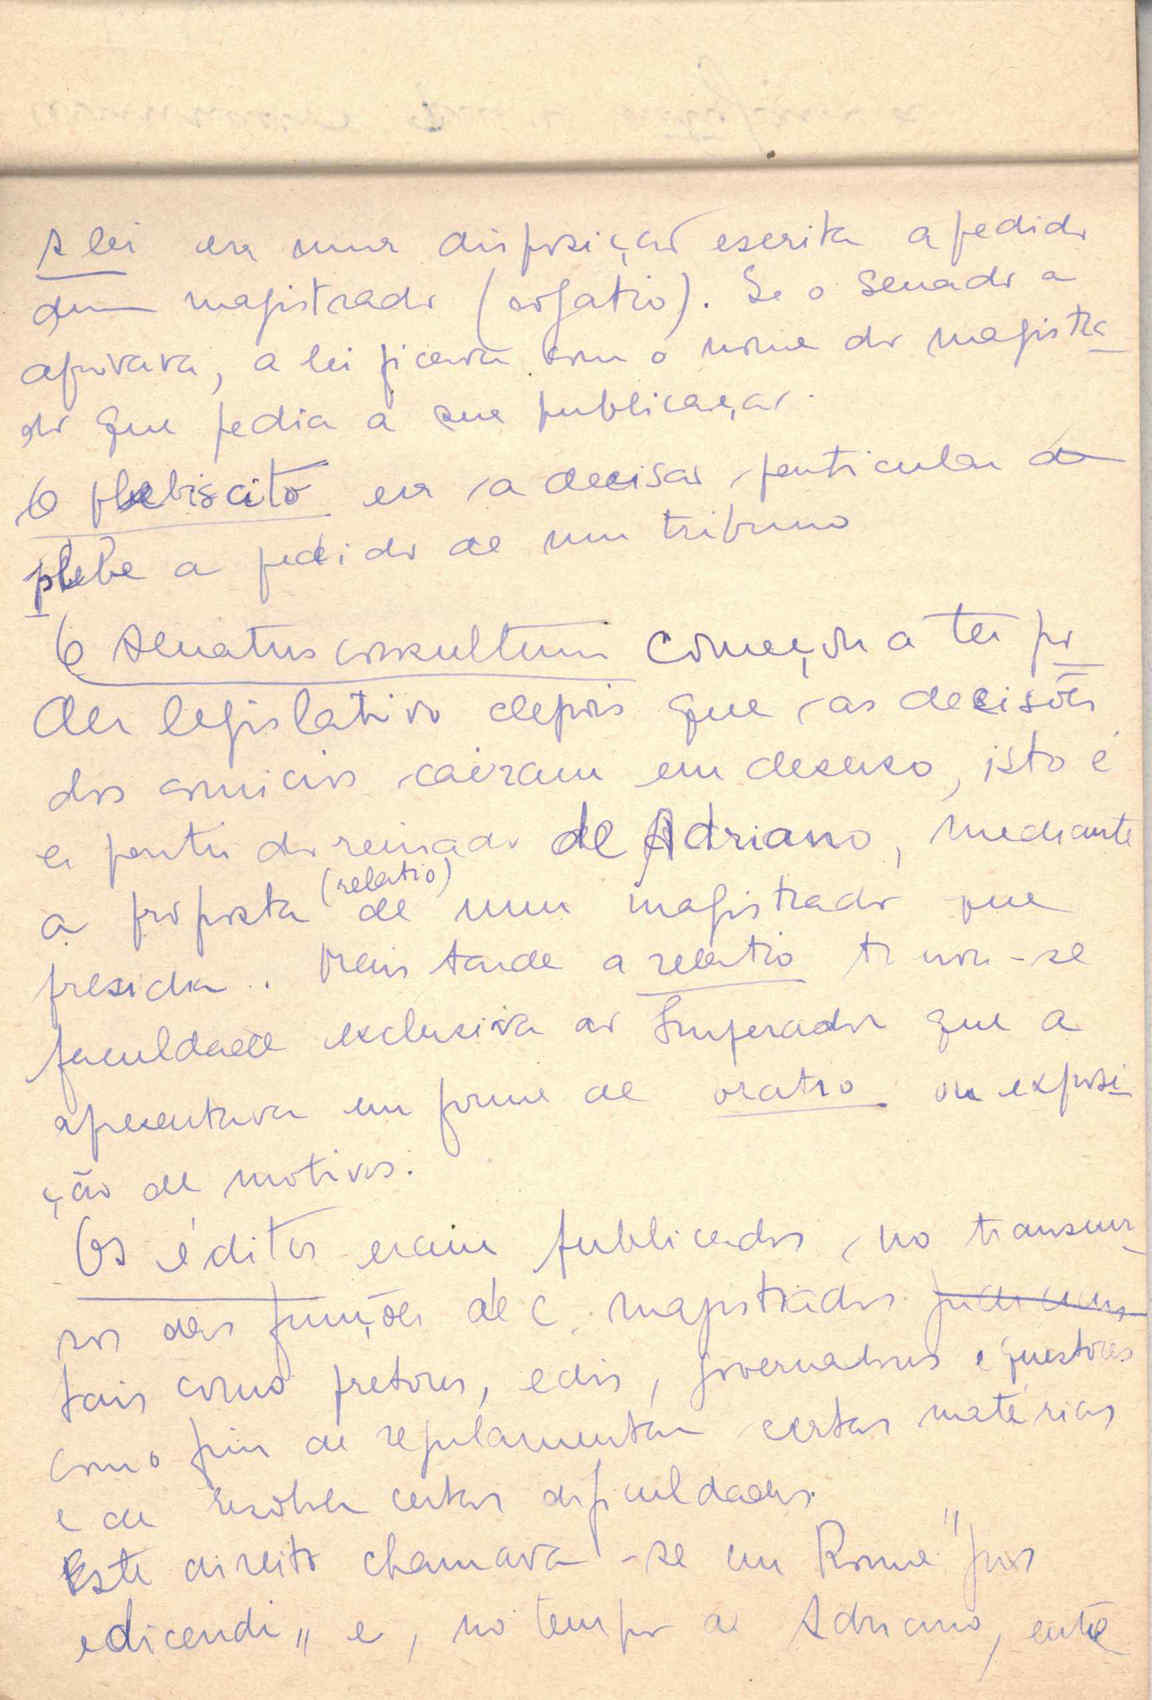 A lei era uma disposição escrita a pedido
dum magistrado (rogatio). Se o Senado a
aprovava, a lei ficava com o nome do magistra-
do que pedia a sua publicação.
O plebiscito era a decisão particular da
plebe a pedido de um tribuno
O senatus consultum começou a ter po-
der legislativo depois que as decisões
dos comicios caíram em desuso, isto é
a partir do reinado de Adriano, mediante
a proposta (relatio) de um magistrado que
presidia. Mais tarde a relatio tornou-se
faculdade exclusiva do Imperador que a
apresentava em forma de oratio ou exposi-
ção de motivos.
Os éditos eram publicados, no transcur-
sos das funções de magistrados
tais como pretores, edis, governadores e questores
com o fim de regulamentar certas matérias
e de resolver certas dificuldades.
Este direito chamava-se em Roma "jus
edicendi" e, no tempo de Adriano, este